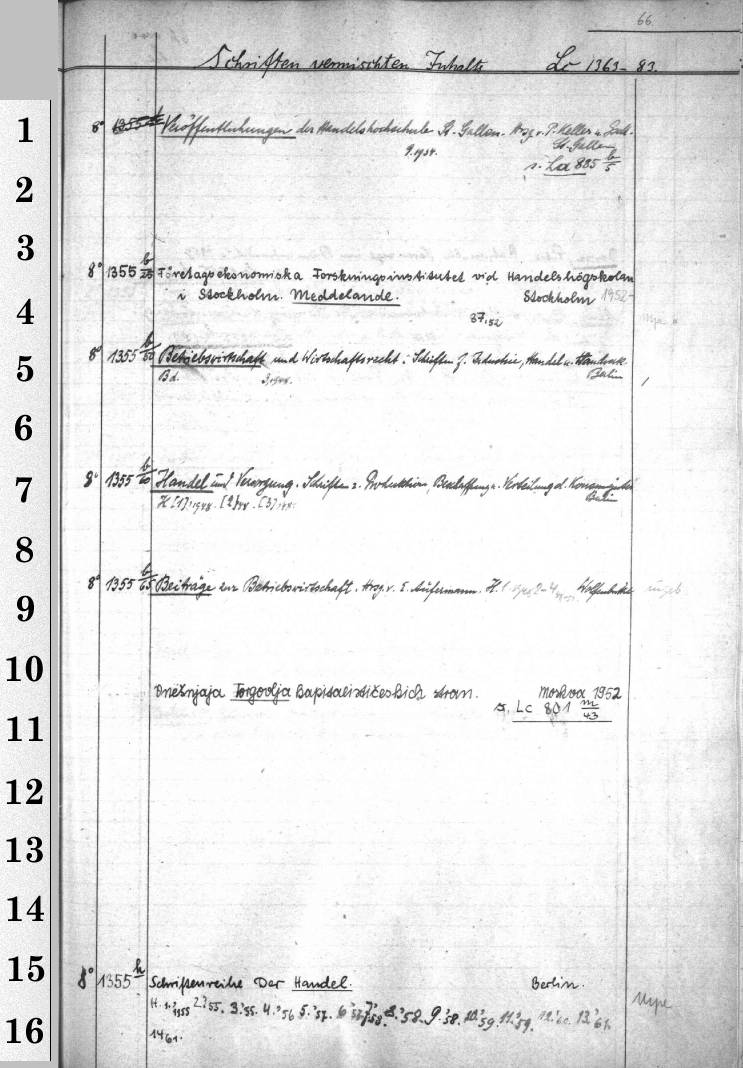 66
Schriften vermischten Inhalts Lc 1363-83.
1
8° Veröffentlichungen der Handelshochschule St. Gallen. Hrsg. v. P. Keller u.
St. Gallen
9.1934.
s. La 885 b/5
2
3
8° 1355 b/25 Företagsekonomiska Forskningsinstitutet vid Handelshögskolan
i Stockholm. Meddelande. Stockholm 1952-
4
37.52
5
8° 1355 b/50 Betriebswirtschaft und Wirtschaftsrecht. Schriften f. Industrie, Handel u. Handwerk.
Bd. Berlin
6
7
8° 1355 b/60 Handel und Versorgung. Schriften z. Produktion, Beschaffung u. Verteilung d. Konsumgüter
H [1] 1948. [2] 48. [3] 48. Berlin
8
8° 1355 b/65 Beiträge zur Betriebswirtschaft. Hrsg. v. E. Aufermann. H. 2-4 Wolfenbüttel ungeb
9
10
Vnešnjaja Torgovlja kapitalističeskich stran. Moskva 1952
s. Lc 801 m/43
11
12
13
14
15
8° 1355 h Schriftenreihe Der Handel. Berlin.
H. 1.'1955 2.'55. 3.'55. 4.'56 5.'57. 6.'57. 7.'58. 8.'58. 9.'58. 10.'59. 11.'59. 12.'60. 13.'61.
16
14 61.